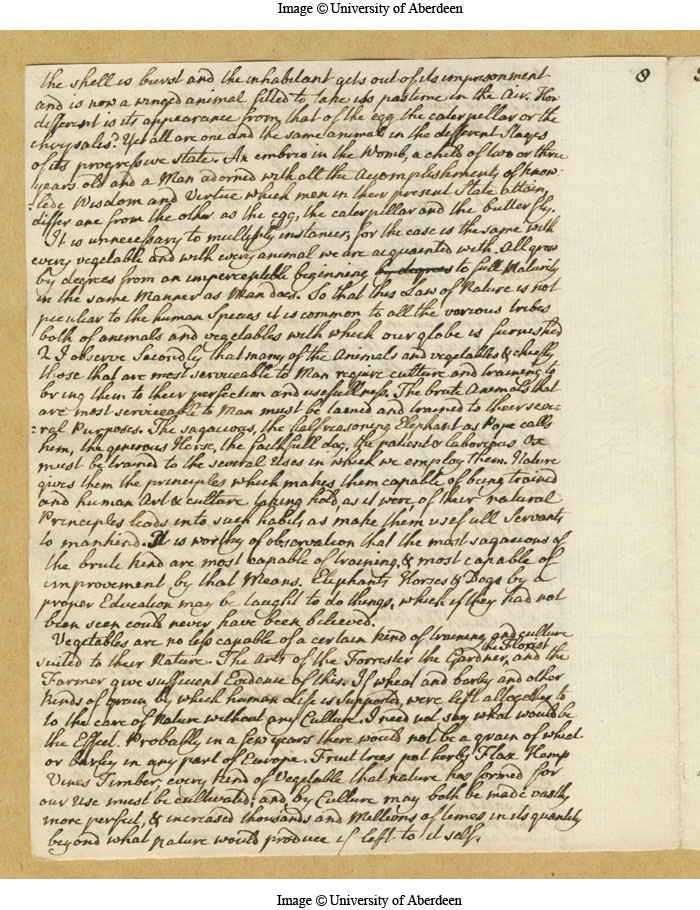 Image © University of Aberdeen
8
the shell is burst and the inhabitant gets out of its imprisonment
and is now a winged animal fitted to take its pastime in the Air. How
different is its appearance from that of the egg the caterpillar or the
chrysalis? Yet all are one and the same animal in the different Stages
of its progressive state. An embrio in the Womb, a child of two or three
years old and a Man adorned with all the Accomplishments of know-
-lede Wisdom and Virtue which men in their present State attain,
differ one from the other as the egg, the caterpillar and the butterfly.
It is unnecessary to multiply instances, for the case is the same with
every vegetable and with every animal we are acquainted with. All grow
by degrees from an imperceptible beginning by degrees to full Maturity
in the same Manner as Man does. So that this Law of Nature is not
peculiar to the human Species it is common to all the various tribes
both of animals and vegetables with which our globe is furnished
2 I observe Secondly that many of the Animals and vegetables & chiefly
those that are most serviceable to Man require culture and training to
bring them to their perfection and usefullness. The brute Animals that
are most serviceable to Man must be tamed and trained to their seve-
=ral Purposes. The sagacious, the half reasoning Elephant as Pope calls
him, the generous Horse, the faithfull dog, the patient & laborious Ox
must be trained to the several Uses in which we employ them. Nature
gives them the principles which makes them capable of being trained
and human Art & culture taking hold, as it were, of their natural
Principles leads into such habits as make them usefull Servants
to mankind. It is worthy of observation that the most sagacious of
the brute kind are most capable of training, & most capable of
improvement by that Means. Elephants Horses & Dogs by a
proper Education may be taught to do things, which if they had not
been seen could never have been believed.
Vegetables are no less capable of a certain kind of training and culture
the Florist
suited to their Nature. The Arts of the Forrester the Gardner, and the
Farmer give sufficient Evidence of this. If wheat and barley and other
kinds of grain by which human Life is supported, were left alltogether to
to the care of Nature without any Culture. I need not say what would be
the Effect. Probably in a few years there would not be a grain of wheat
or Barley in any part of Europe. Fruit trees pot herbs Flax Hemp
Vines Timber every kind of Vegetable that nature has formed for
our Use must be cultivated; and by Culture may both be made vastly
more perfect, & increased thousands and Millions of times in its quantity
beyond what Nature would produce if left to it self.
Image © University of Aberdeen